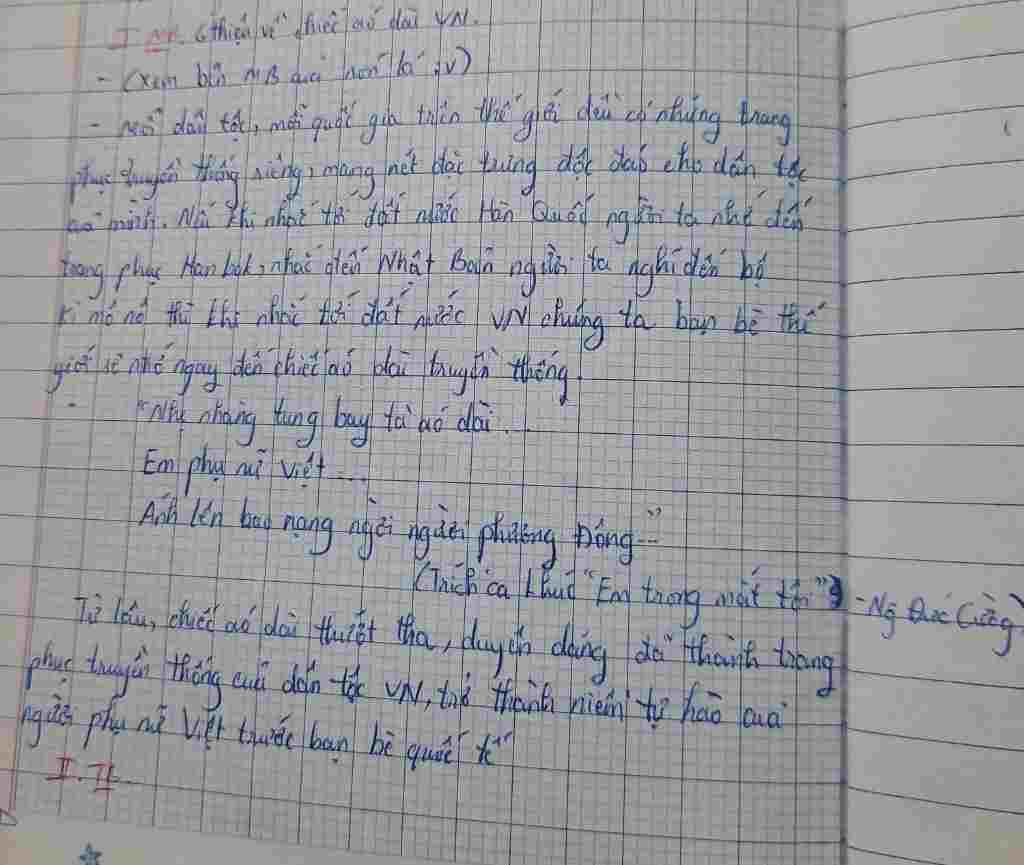 I. MB. Gthiệu về chiếc áo dài VN.
- (Xem bên MB của nón lá :v)
- Mỗi dân tộc, mỗi quốc gia trên thế giới đều có những trang
phục truyền thống riêng, mang nét đặc trưng độc đáo cho dân tộc
của mình. Nếu khi nhắc tới đất nước Hàn Quốc người ta nhớ đến
trang phục Hanbok, nhắc đến Nhật Bản người ta nghĩ đến bộ
Ki mô nô thì khi nhắc tới đất nước VN chúng ta bạn bè thế
giới sẽ nhớ ngay đến chiếc áo dài truyền thống.
- "Nhẹ nhàng tung bay tà áo dài...
Em phụ nữ Việt ....
Ánh lên bao rạng ngời người phương Đông..."
(Trích ca khúc "Em trong mắt tôi") - Ng Đức Cường)
Từ lâu, chiếc áo dài thướt tha, duyên dáng đã thành trang
phục truyền thống của dân tộc VN, trở thành niềm tự hào của
người phụ nữ Việt trước bạn bè quốc tế
II. TB